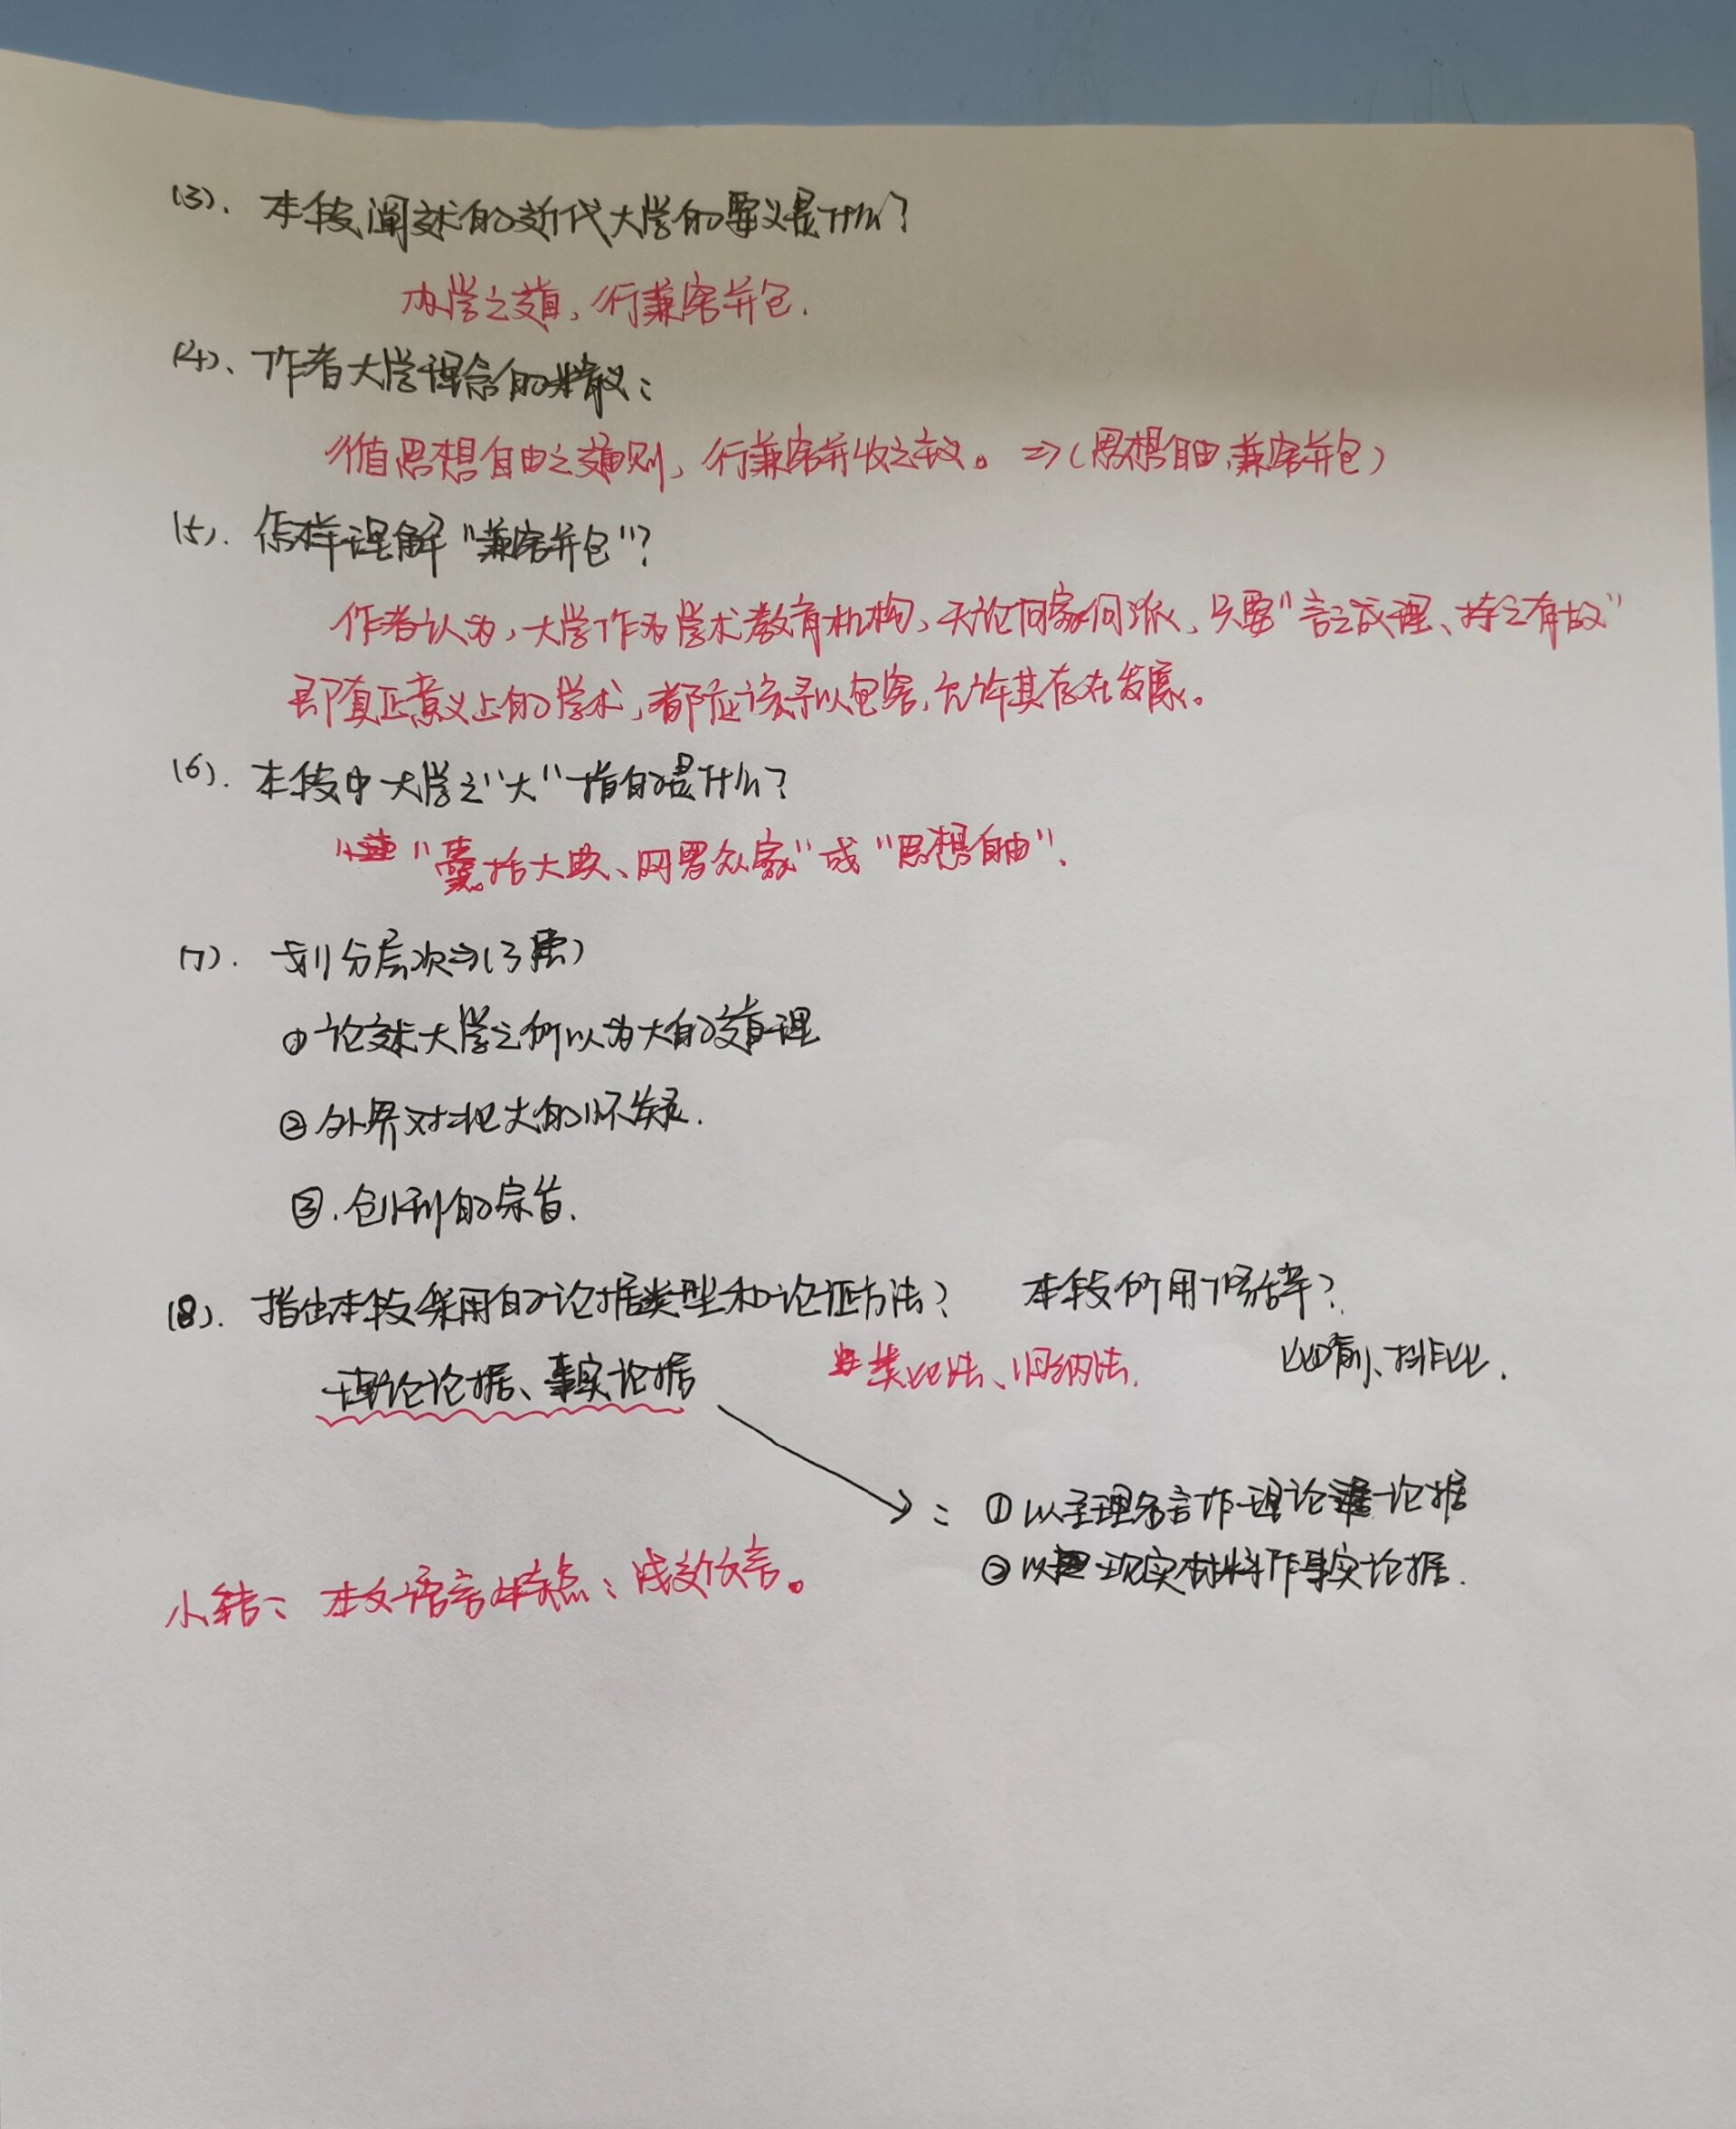 (3). 本段阐述的近代大学的要义是什么?
大学之道,行兼容并包.
(4)、作者大学理念的精义:
循思想自由之通则,行兼容并收之主义。⇒(思想自由、兼容并包)
(5). 怎样理解"兼容并包"?
作者认为,大学作为学术教育机构,无论何家何派,只要"言之成理、持之有故"
即真正意义上的学术,都应该予以包容,允许其存在发展。
(6). 本段中大学之"大"指的是什么?
"囊括大典、网罗众家"或"思想自由".
(7). 划分层次⇒(3层)
①论述大学之所以为大的道理
②外界对北大的怀疑.
③.创刊的宗旨.
(8). 指出本段采用的论据类型和论证方法? 本段所用修辞?
理论论据、事实论据 类比法、归纳法. 比喻、排比.
: ①以至理名言作理论论据
②以现实材料作事实论据.
小结: 本文语言特点:浅近文言。